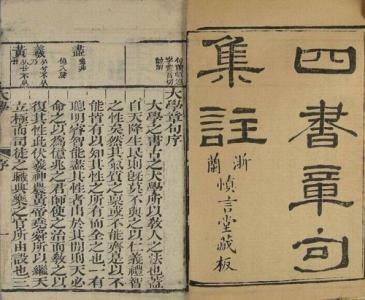 四書章句
集註
浙
蘭
慎言堂藏板
大學章句序
大學之書古之大學所以教人之法也蓋
自天降生民則既莫不與之以仁義禮智
之性矣然其氣質之稟或不能齊是以不
能皆有以知其性之所有而全之也一有
聰明睿智能盡其性者出於其間則天必
命之以為億兆之君師使之治而教之以
復其性此伏羲神農黃帝堯舜所以繼天
立極而司徒之職典樂之官所由設也三
盡
羲
黃
大學
序